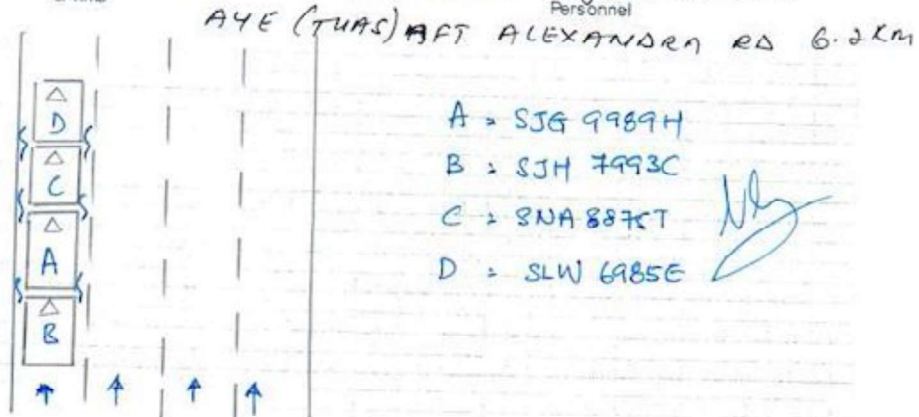 Personnel
AYE (TUAS) AFT ALEXANDRA RD 6.2KM
D
C
A
B
A = SJG 9989H
B : SJH 7993C
C : SNA 8875T
D : SLW 6985E